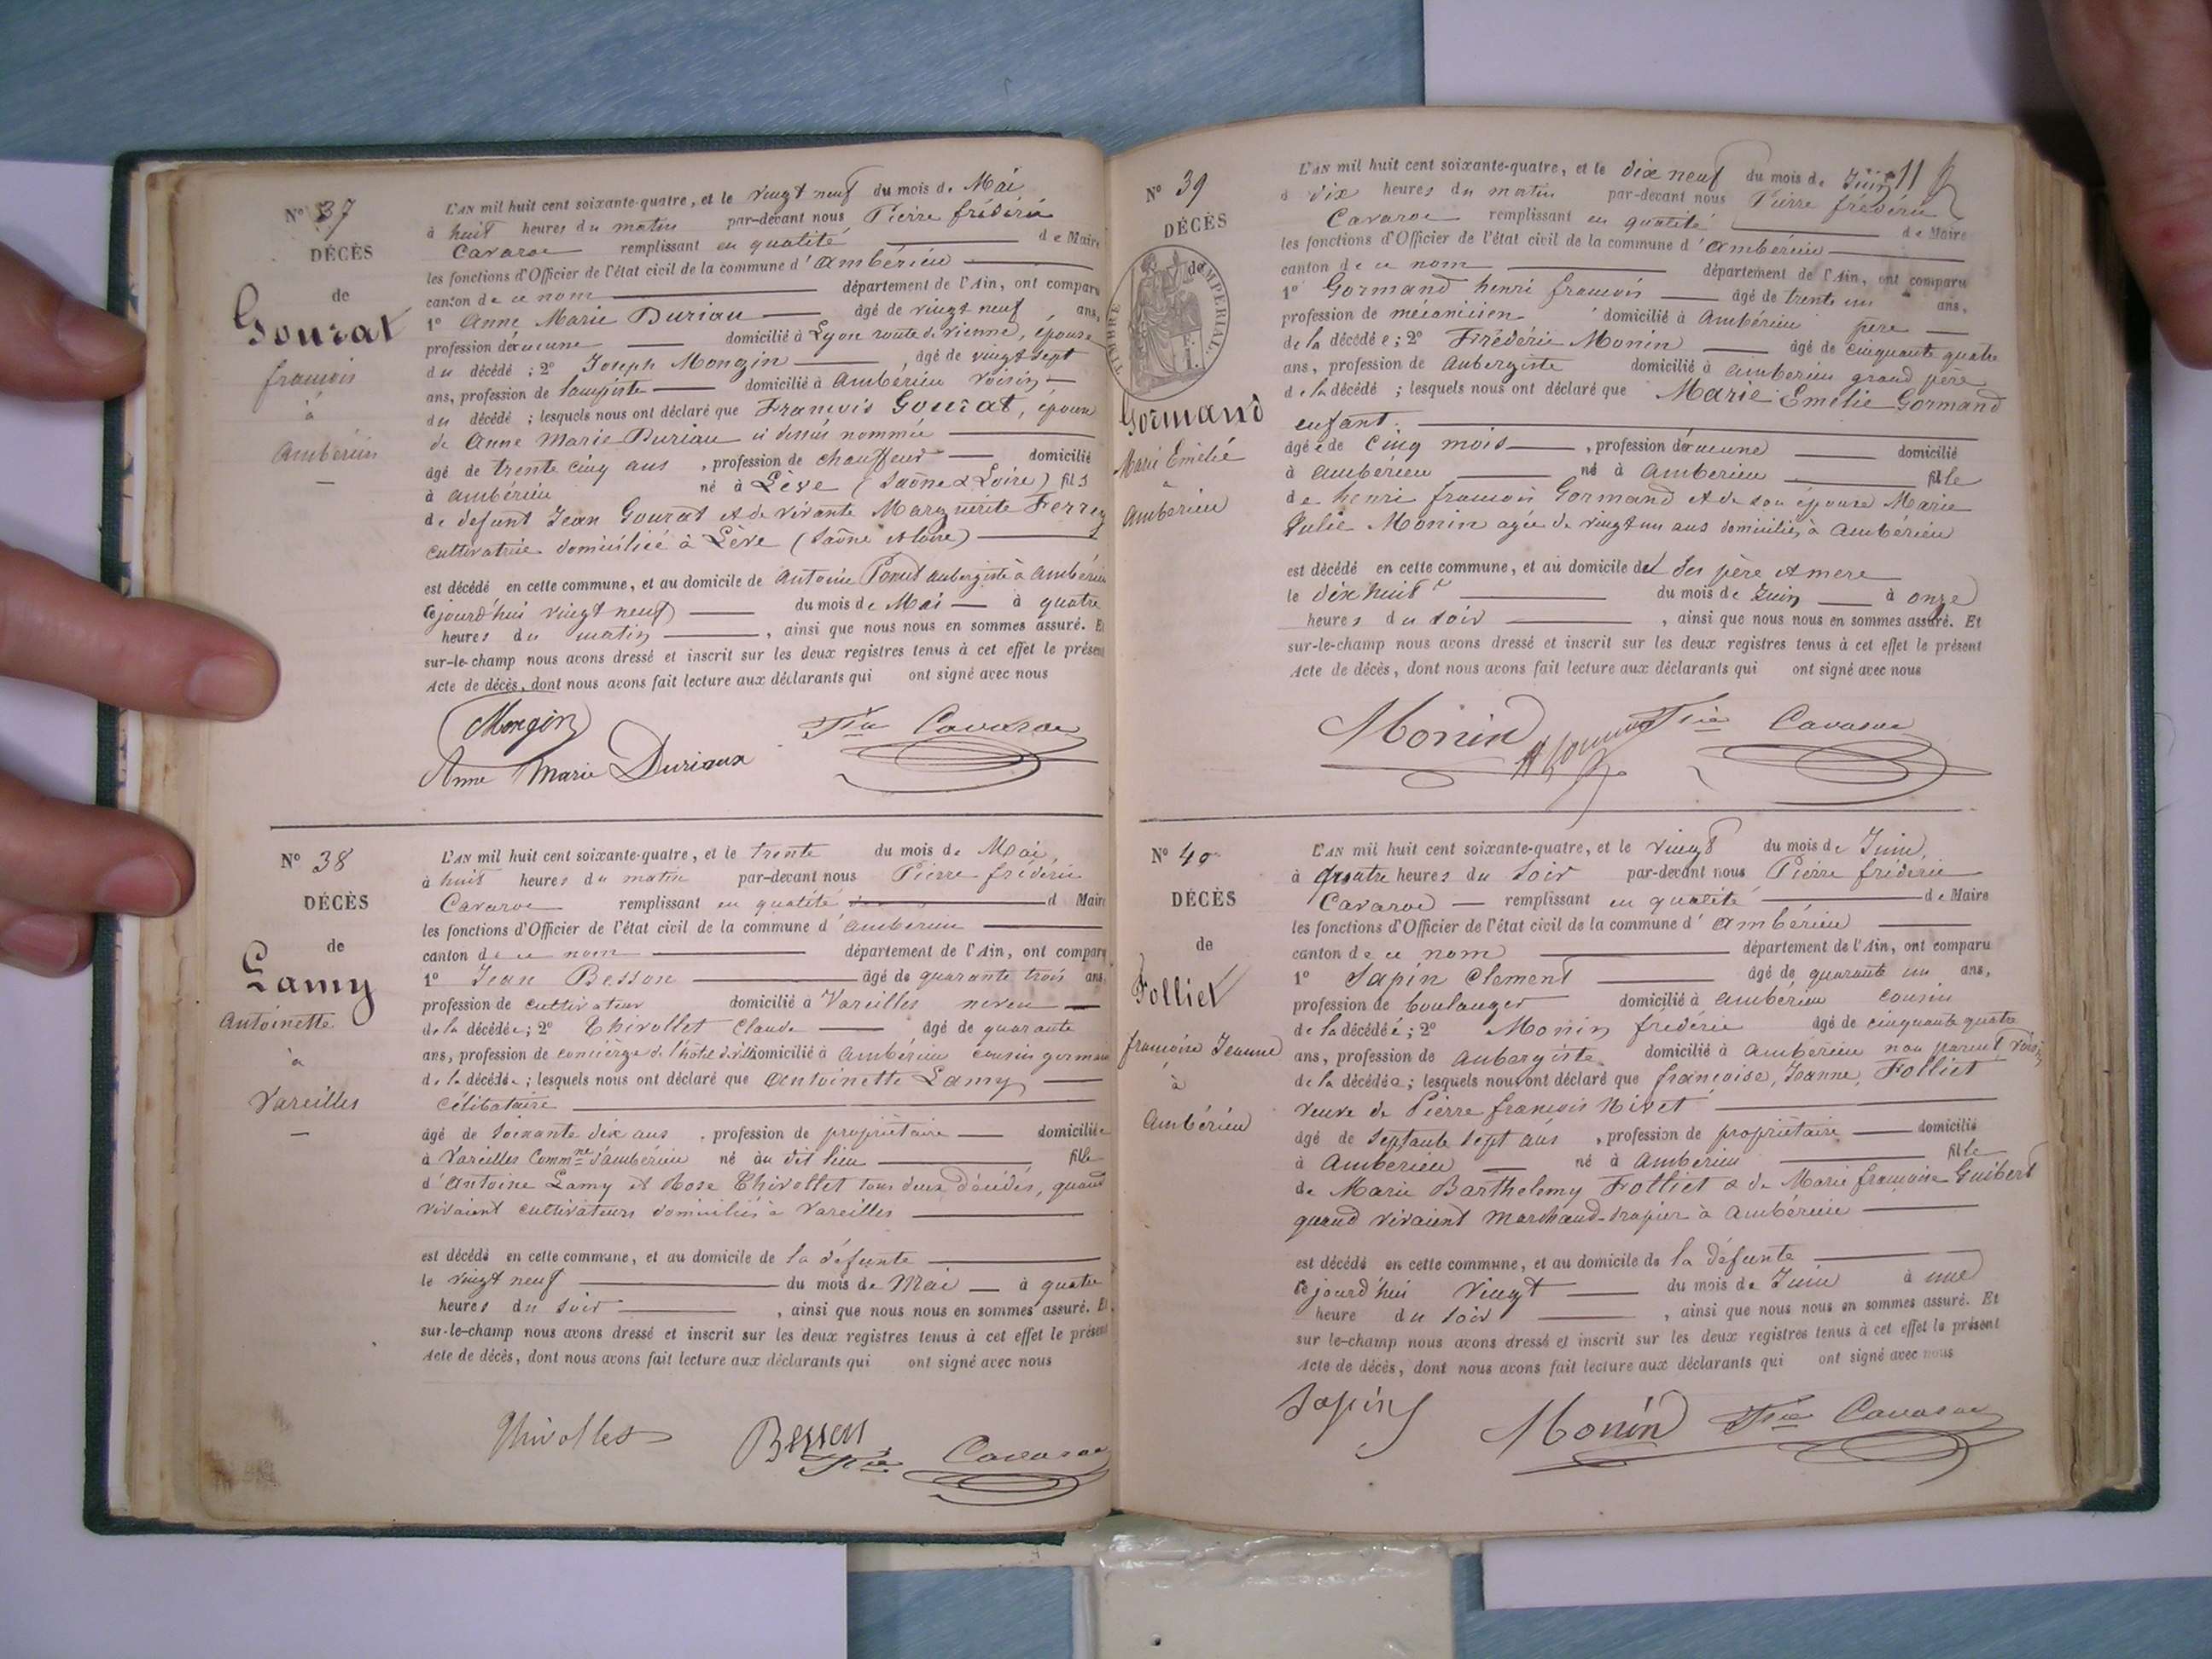 N° 37
DÉCÈS
de
Gourat
françois
à
Ambérieu
L'AN mil huit cent soixante-quatre, et le vingt neuf du mois de Mai
à huit heures du matin par-devant nous Pierre frédéric
Cavaroc remplissant en qualité de Maire
les fonctions d'Officier de l'état civil de la commune d'Ambérieu
canton de ce nom département de l'Ain, ont comparu
1° Anne Marie Duriau âgé de vingt neuf ans,
profession d'aucune domicilié à Lyon route de vienne, épouse
du décédé ; 2° Joseph Mongin âgé de vingt sept
ans, profession de lampiste domicilié à Ambérieu voisin
du décédé ; lesquels nous ont déclaré que François Gourat, époux
de Anne Marie Duriau ci dessus nommée
âgé de trente cinq ans , profession de chauffeur domicilié
à ambérieu né à Lève (Saône & Loire) fils
de defunt Jean Gourat et de vivante Marguerite Ferrey
cultivatrice domiciliée à Lève (Saône et Loire)
est décédé en cette commune, et au domicile de Antoine Ponut aubergiste à Ambérieu
cejourd'hui vingt neuf du mois de Mai à quatre
heures du matin , ainsi que nous nous en sommes assuré. Et
sur-le-champ nous avons dressé et inscrit sur les deux registres tenus à cet effet le présent
Acte de décès, dont nous avons fait lecture aux déclarants qui ont signé avec nous
Mongin Fric Cavaroc
Anne Marie Duriaux
N° 38
DÉCÈS
de
Lamy
Antoinette
à
Vareilles
L'AN mil huit cent soixante-quatre, et le trente du mois de Mai,
à huit heures du matin par-devant nous Pierre frédéric
Cavaroc remplissant en qualité d Maire
les fonctions d'Officier de l'état civil de la commune d'Amberieu
canton de ce nom département de l'Ain, ont comparu
1° Jean Besson âgé de quarante trois ans
profession de cultivateur domicilié à Vareilles neveu
de la décédée ; 2° Thivollet Claude âgé de quarante
ans, profession de concièrge de l'hôtel de ville domicilié à Ambérieu cousin germain
de la décédée ; lesquels nous ont déclaré que Antoinette Lamy
Célibataire
âgé de soixante dix ans , profession de propriétaire domiciliée
à Vareilles Commne d'ambérieu né au dit lieu fille
d'Antoine Lamy et Rose Thivollet tous deux décédés, quand
vivaient cultivateurs domiciliés à Vareilles
est décédé en cette commune, et au domicile de la défunte
le vingt neuf du mois de Mai à quatre
heures du soir , ainsi que nous nous en sommes assuré. Et
sur-le-champ nous avons dressé et inscrit sur les deux registres tenus à cet effet le présent
Acte de décès, dont nous avons fait lecture aux déclarants qui ont signé avec nous
Thivollet Besson Fric Cavaroc
N° 39
DÉCÈS
de
TIMBRE IMPERIAL
Gormand
Marie Emélie
à
Ambérieu
L'AN mil huit cent soixante-quatre, et le dix neuf du mois de Juin 11
à dix heures du matin par-devant nous Pierre frédéric
Cavaroc remplissant en qualité de Maire
les fonctions d'Officier de l'état civil de la commune d'Ambérieu
canton de ce nom département de l'Ain, ont comparu
1° Gormand henri françois âgé de trente un ans,
profession de mécanicien domicilié à Ambérieu père
de la décédée ; 2° Frédéric Monin âgé de cinquante quatre
ans, profession de Aubergiste domicilié à Ambérieu grand père
de la décédé ; lesquels nous ont déclaré que Marie Emélie Gormand
enfant.
âgée de Cinq mois , profession d'aucune domicilié
à Ambérieu né à Amberieu fille
de henri françois Gormand et de son épouse Marie
Julie Monin agée de vingt un ans domiciliés à Ambérieu
est décédé en cette commune, et au domicile de ses père et mere
le dix huit du mois de Juin à onze
heures du soir , ainsi que nous nous en sommes assuré. Et
sur-le-champ nous avons dressé et inscrit sur les deux registres tenus à cet effet le présent
Acte de décès, dont nous avons fait lecture aux déclarants qui ont signé avec nous
Monin Fric Cavaroc
N° 40
DÉCÈS
de
Folliet
françoise Jeanne
à
Ambérieu
L'AN mil huit cent soixante-quatre, et le vingt du mois de Juin,
à quatre heures du soir par-devant nous Pierre frédéric
Cavaroc remplissant en qualité de Maire
les fonctions d'Officier de l'état civil de la commune d'Ambérieu
canton de ce nom département de l'Ain, ont comparu
1° Sapin Clement âgé de quarante un ans,
profession de boulanger domicilié à Ambérieu cousin
de la décédée ; 2° Monin frédéric âgé de cinquante quatre
ans, profession de aubergiste domicilié à Ambérieu non parent voisin
de la décédée ; lesquels nous ont déclaré que françoise, Jeanne, Folliet
veuve de Pierre françois Nivet
âgé de septante sept ans , profession de propriétaire domicilié
à Amberieu né à Ambérieu fille
de Marie Barthelemy Folliet & de Marie françoise Guibert
quand vivaient Marchand-drapier à Ambérieu
est décédé en cette commune, et au domicile de la défunte
cejourd'hui vingt du mois de Juin à une
heure du soir , ainsi que nous nous en sommes assuré. Et
sur-le-champ nous avons dressé et inscrit sur les deux registres tenus à cet effet le présent
Acte de décès, dont nous avons fait lecture aux déclarants qui ont signé avec nous
Sapin Monin Fric Cavaroc